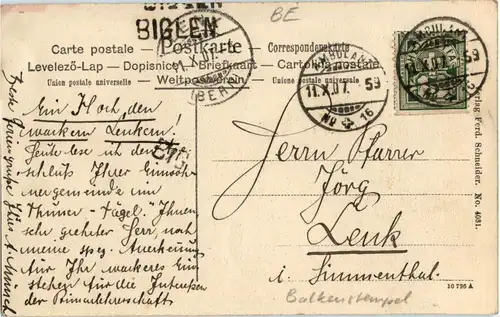 BIGLEN
BIGLEN
BE
Carte postale — Postkarte — Correspondenzkarte
Levelező-Lap — Dopisnice — Briefkaart — Cartolina postale
Union postale universelle — Weltpostverein — Union postale universelle
11.X.07.
(BERN)
AMBULANT
11.X.07. - 59
No 16
AMBULANT
11.X.07. 59
Ein Hoch den
wackern Lenkern!
Heute lese ich den
schluß Ihrer Einwoh-
nergemeinde im
"Thuner-Tägbl." Ihnen
sehr geehrter Herr, noch
meine spez. Anerkennung
für Ihr wackeres Ein-
stehen für die Interessen
der Primarlehrerschaft
Herrn Pfarrer
Jörg
Lenk
i. Simmenthal
Balkenstempel
Verlag Ferd. Schneider. No. 4031.
10 795 A